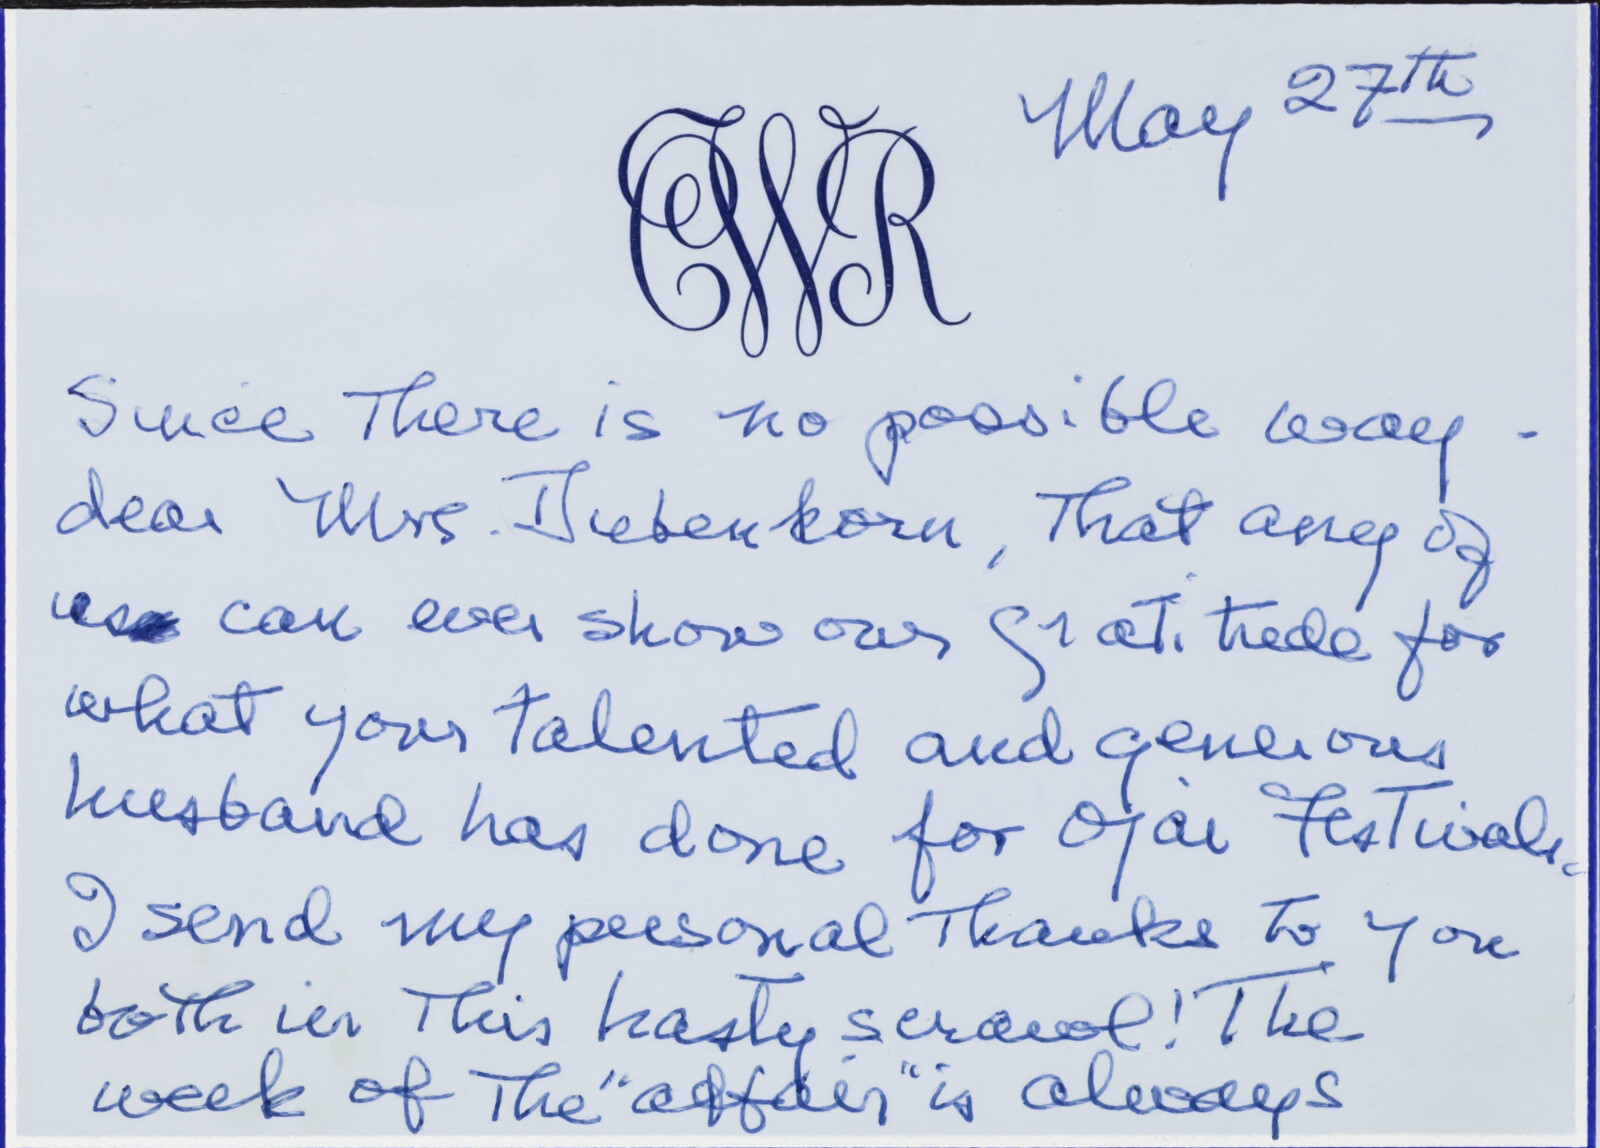 May 27th
CWR
Since there is no possible way -
dear Mrs. Diebenkorn, that any of
us can ever show our gratitude for
what your talented and generous
husband has done for Ojai Festivals.
I send my personal thanks to you
both in this hasty scrawl! The
week of the "affair" is always